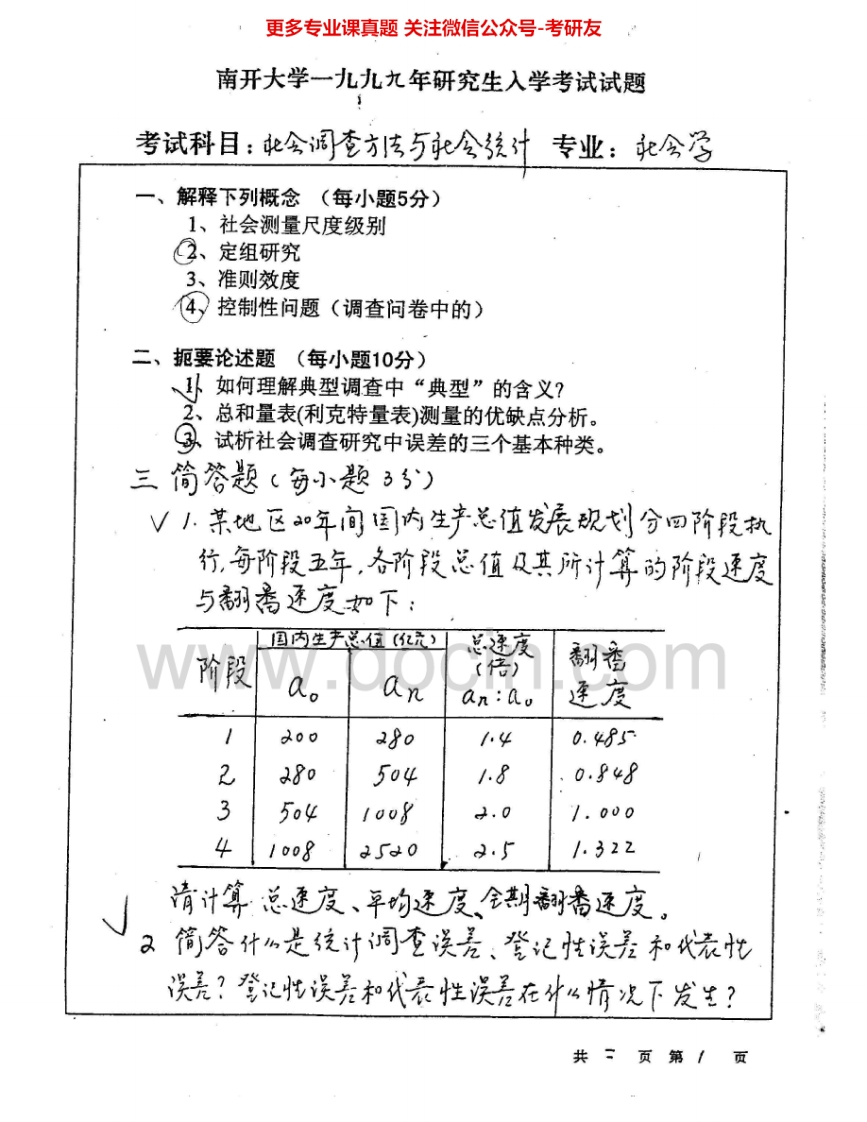 更多专业课真题 关注微信公众号-考研友
南开大学一九九九年研究生入学考试试题
考试科目：社会调查方法与社会统计 专业：社会学
一、解释下列概念 （每小题5分）
1、社会测量尺度级别
2、定组研究
3、准则效度
4、控制性问题（调查问卷中的）
二、扼要论述题 （每小题10分）
1、如何理解典型调查中“典型”的含义？
2、总和量表(利克特量表)测量的优缺点分析。
3、试析社会调查研究中误差的三个基本种类。
三 简答题（每小题3分）
√ 1. 某地区20年间国内生产总值发展规划分四阶段执
行，每阶段五年，各阶段总值及其所计算的阶段速度
与翻番速度如下：
阶段 国内生产总值（亿元） 总速度（倍） 翻番速度
a₀ aₙ aₙ:a₀
1 200 280 1.4 0.485
2 280 504 1.8 0.848
3 504 1008 2.0 1.000
4 1008 2520 2.5 1.322
请计算总速度、平均速度、全期翻番速度。
√ 2 简答什么是统计调查误差、登记性误差和代表性
误差？登记性误差和代表性误差在什么情况下发生？
www.docin.com
共 二 页 第 1 页